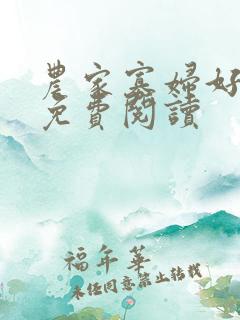 農家寡婦好
免費閱讀
福年華
未經同意禁止轉載